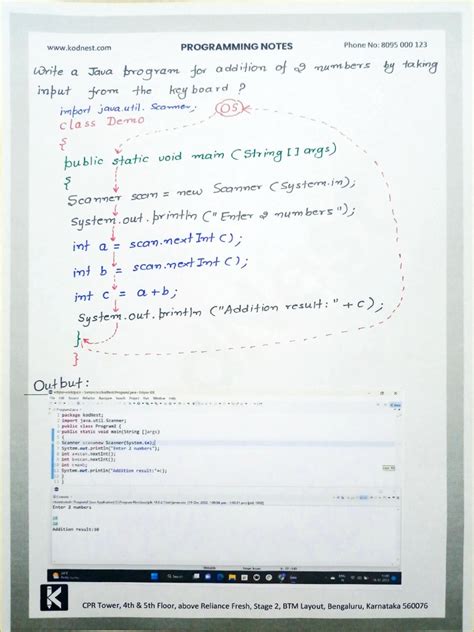 www.kodnest.com
PROGRAMMING NOTES
Phone No: 8095 000 123
Write a Java program for addition of 2 numbers by taking
input from the keyboard ?
import java.util. Scanner;
OS
class Demo
{
public static void main (String [] args)
{
Scanner scan = new Scanner (System.in);
System.out.println ("Enter 2 numbers");
int a = scan.nextInt();
int b = scan.nextInt();
int c = a+b;
System.out.println ("Addition result:" +c);
}
}
Output:
1 package kodnest;
2 import java.util.Scanner;
3 public class Program3 {
4 public static void main(String []args)
5 {
System.out.println("Enter 2 numbers");
System.out.println("Addition result:"+c);
}
}
Enter 2 numbers
Addition result:
K
CPR Tower, 4th & 5th Floor, above Reliance Fresh, Stage 2, BTM Layout, Bengaluru, Karnataka 560076